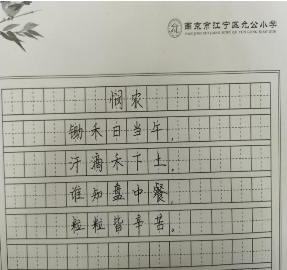 南京市江宁区允公小学
悯农
锄禾日当午，
汗滴禾下土。
谁知盘中餐，
粒粒皆辛苦。